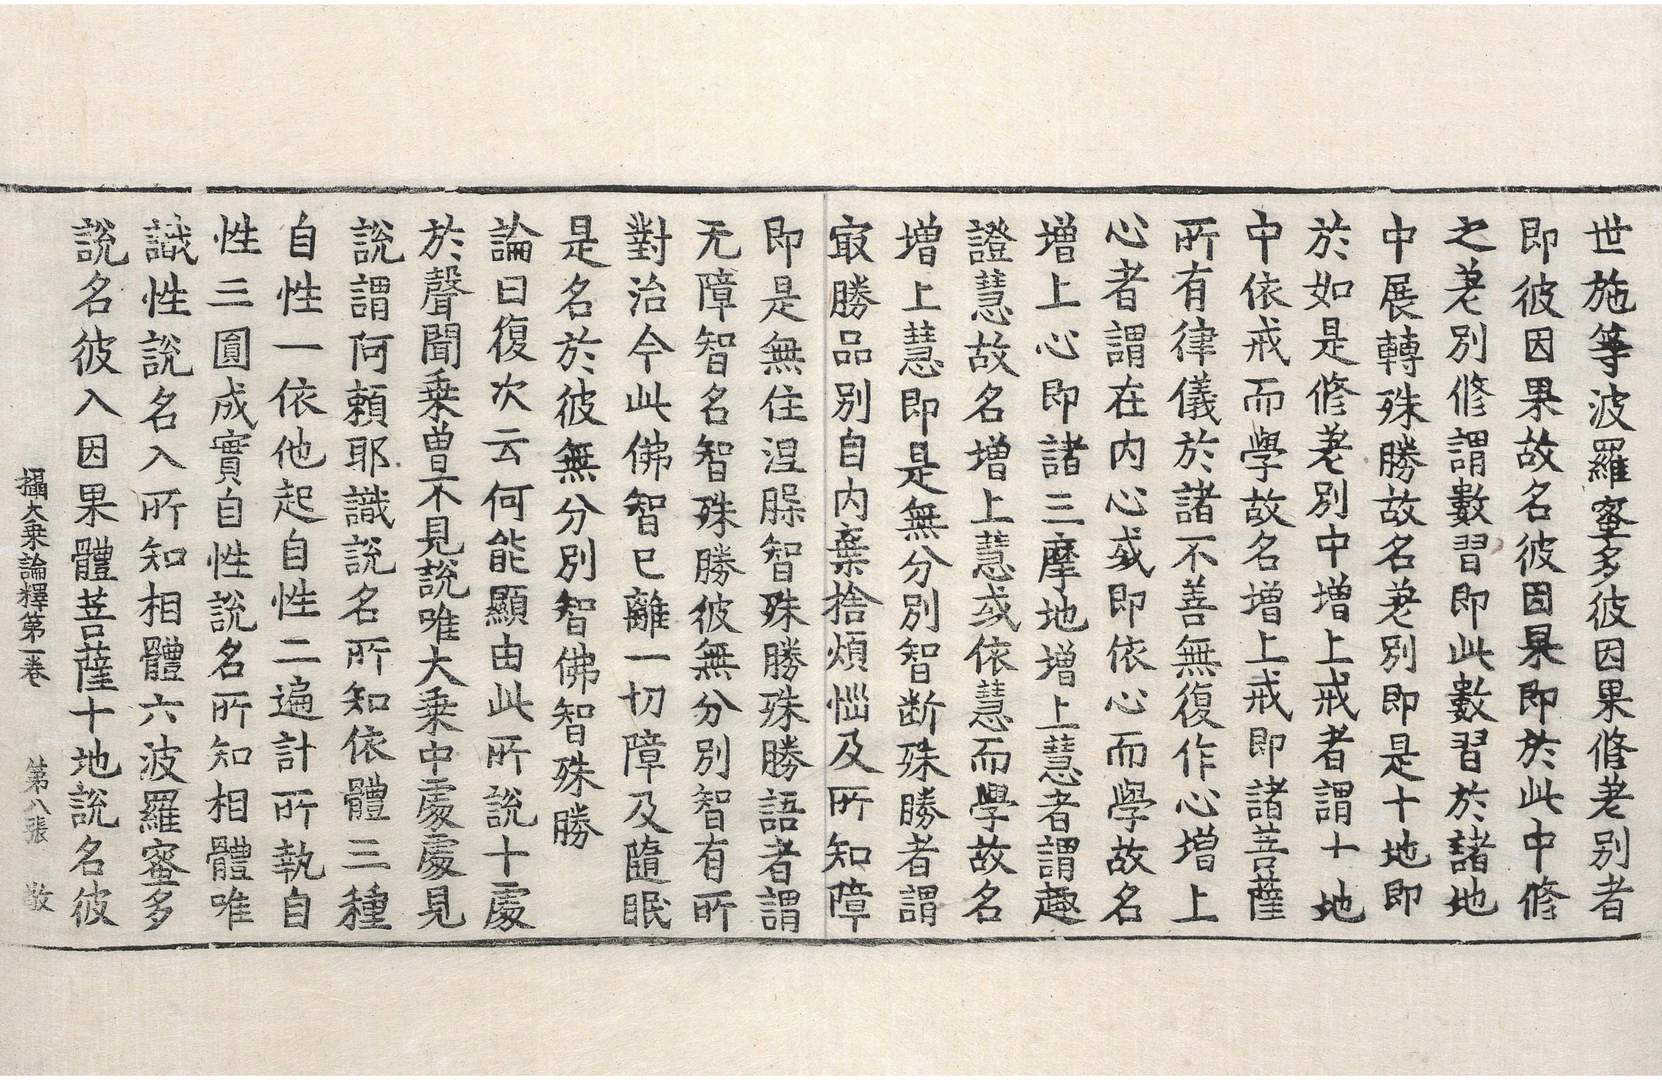 世施等波羅蜜多彼因果修差別者
即彼因果故名彼因果即於此中修
之差別修謂數習即此數習於諸地
中展轉殊勝故名差別即是十地即
於如是修差別中增上戒者謂十地
中依戒而學故名增上戒即諸菩薩
所有律儀於諸不善無復作心增上
心者謂在內心或即依心而學故名
增上心即諸三摩地增上慧者謂趣
證慧故名增上慧或依慧而學故名
增上慧即是無分別智斷殊勝者謂
寂勝品別自內棄捨煩惱及所知障
即是無住涅槃智殊勝殊勝語者謂
无障智名智殊勝彼無分別智有所
對治今此佛智已離一切障及隨眠
是名於彼無分別智佛智殊勝
論曰復次云何能顯由此所說十處
於聲聞乘曾不見說唯大乘中處處見
說謂阿賴耶識說名所知依體三種
自性一依他起自性二遍計所執自
性三圓成實自性說名所知相體唯
識性說名入所知相體六波羅蜜多
說名彼入因果體菩薩十地說名彼
攝大乘論釋第一卷 第八張 敬